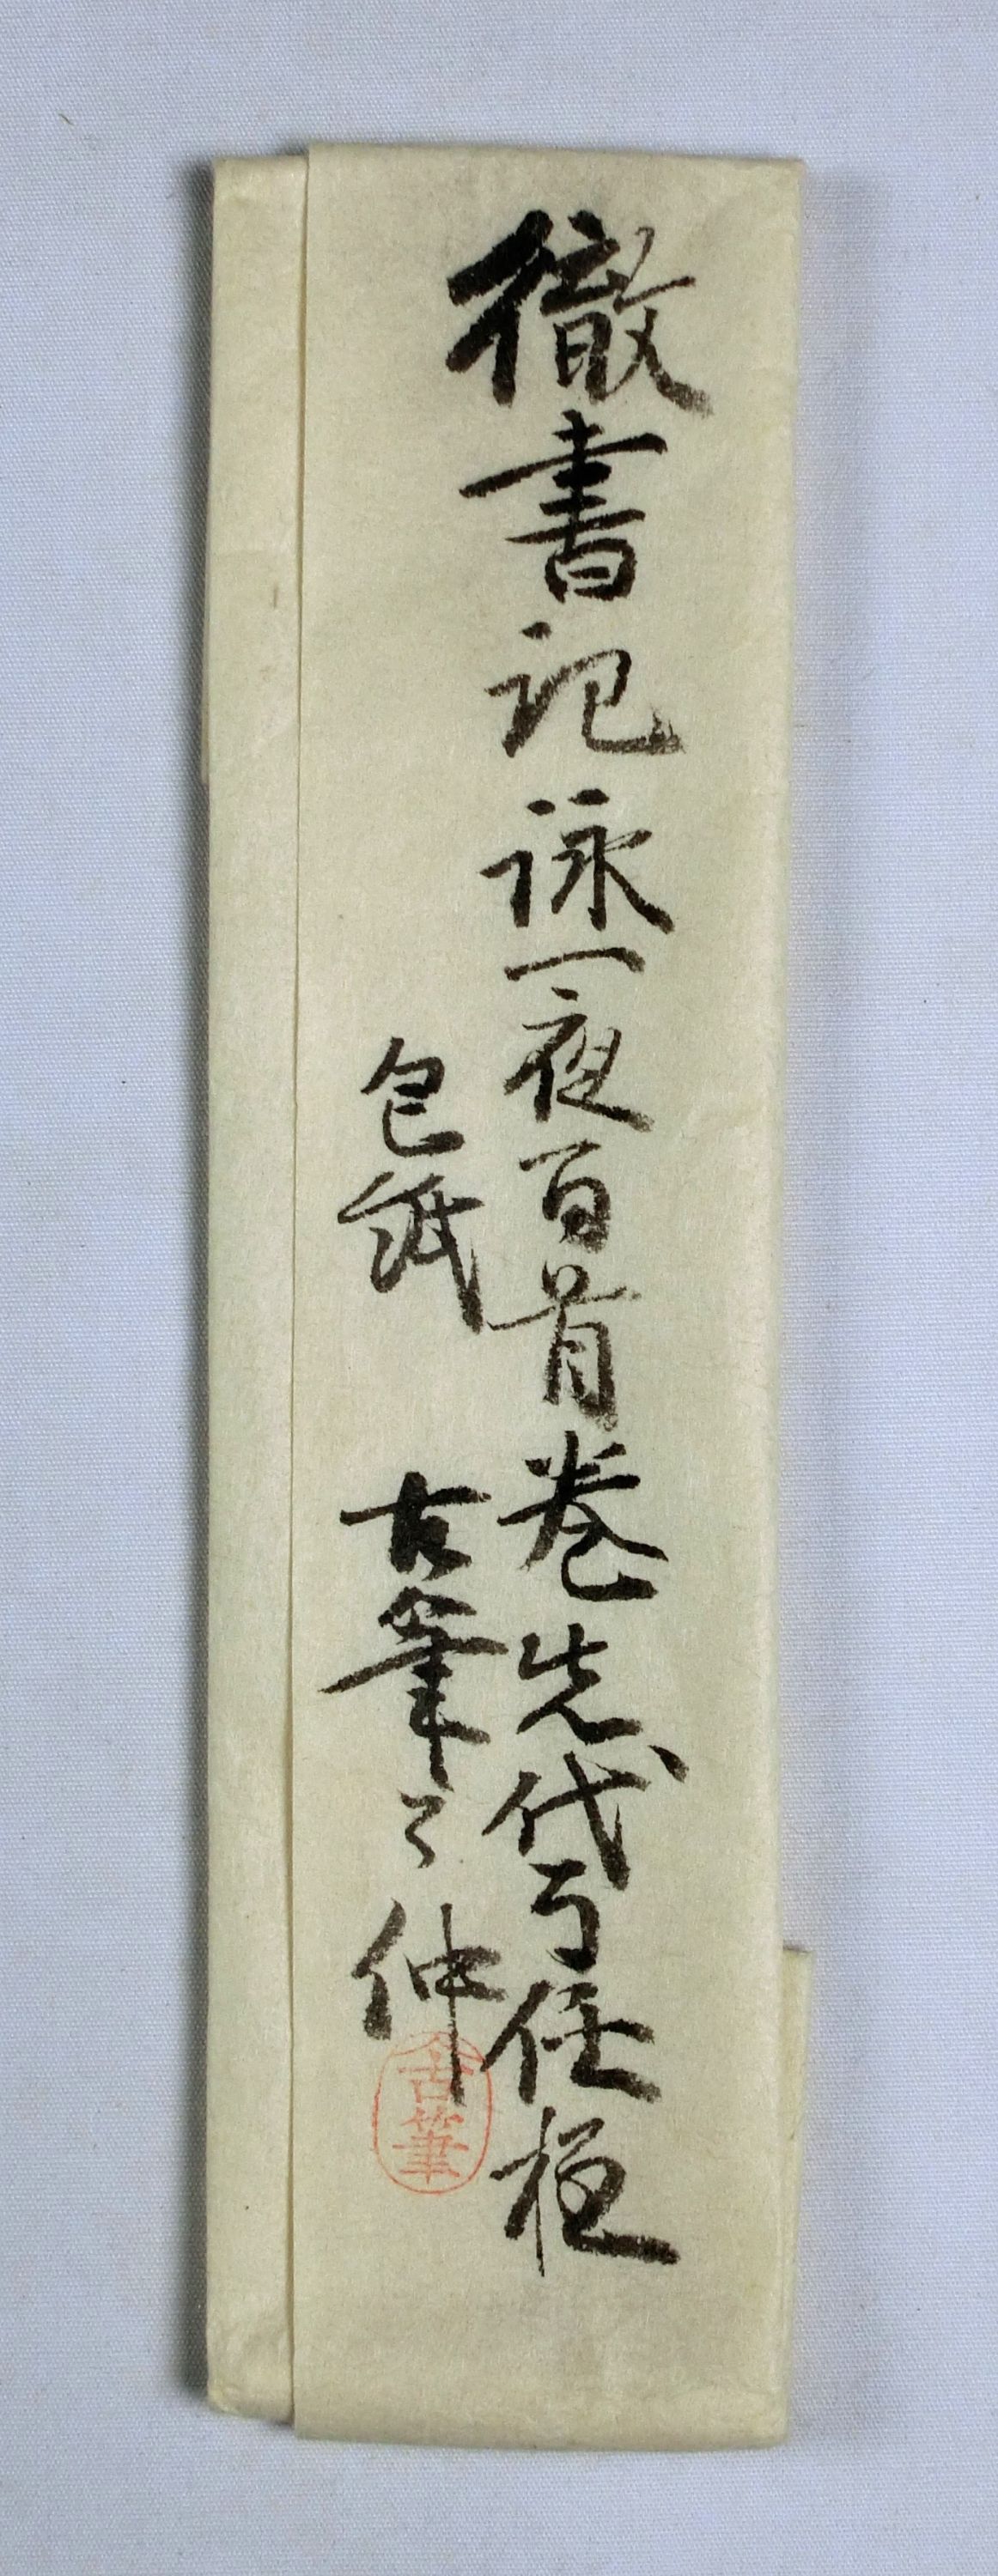 徹書記詠一夜百首巻先代了任極
包紙　古筆了仲
古筆